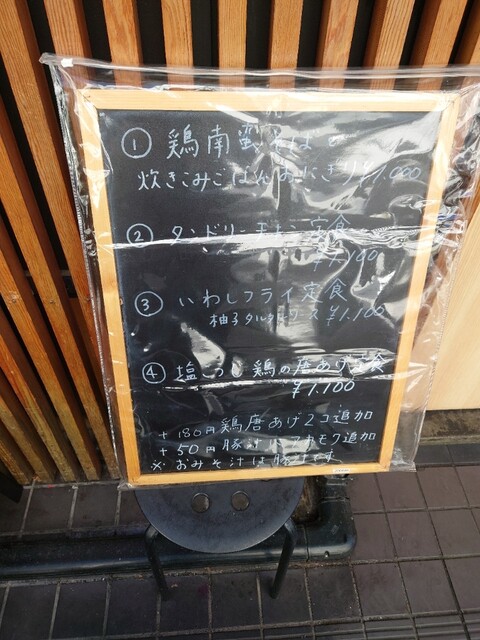 ① 鶏南蛮そばと
炊きこみごはんおにぎり ¥1.000
② タンドリーチキン定食
¥1,100
③ いわしフライ定食
柚子タルタルソース ¥1.100
④ 塩こうじ鶏の唐あげ定食
¥1.100
+180円 鶏唐あげ2コ追加
+50円 豚汁にアカモク追加
※おみそ汁は豚汁です